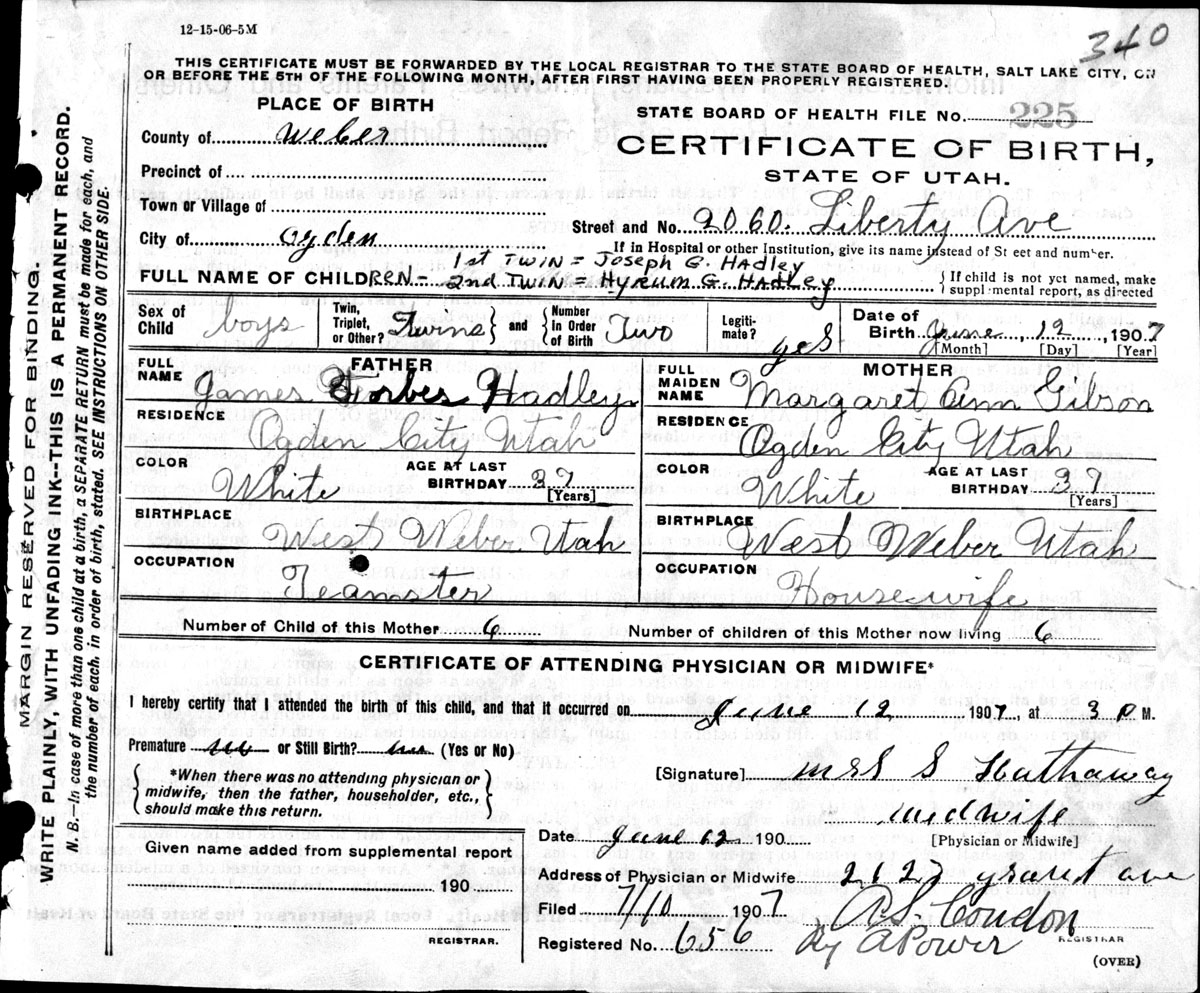 12-15-06-5M
340
THIS CERTIFICATE MUST BE FORWARDED BY THE LOCAL REGISTRAR TO THE STATE BOARD OF HEALTH, SALT LAKE CITY, ON
OR BEFORE THE 5TH OF THE FOLLOWING MONTH, AFTER FIRST HAVING BEEN PROPERLY REGISTERED.
PLACE OF BIRTH
STATE BOARD OF HEALTH FILE No. 225
County of Weber
CERTIFICATE OF BIRTH,
STATE OF UTAH.
Precinct of
Town or Village of
Street and No. 2060. Liberty Ave
City of Ogden
If in Hospital or other Institution, give its name instead of St eet and number.
1st TWIN = JOSEPH G. HADLEY
FULL NAME OF CHILDREN- 2nd TWIN = HYRUM G. HADLEY
{If child is not yet named, make
supplemental report, as directed
Sex of Child boys
Twin, Triplet, or Other? Twins
and
Number In Order of Birth Two
Legiti-mate? yes
Date of Birth June, 12, 1907
[Month] [Day] [Year]
FATHER
FULL NAME James Forbes Hadley
RESIDENCE Ogden City Utah
COLOR White
AGE AT LAST BIRTHDAY 37
[Years]
BIRTHPLACE West Weber Utah
OCCUPATION Teamster
MOTHER
FULL MAIDEN NAME Margaret Ann Gibson
RESIDENCE Ogden City Utah
COLOR White
AGE AT LAST BIRTHDAY 37
[Years]
BIRTHPLACE West Weber Utah
OCCUPATION Housewife
Number of Child of this Mother 6
Number of children of this Mother now living 6
CERTIFICATE OF ATTENDING PHYSICIAN OR MIDWIFE*
I hereby certify that I attended the birth of this child, and that it occurred on June 12 1907, at 3 P M.
Premature no or Still Birth? no (Yes or No)
{*When there was no attending physician or
midwife, then the father, householder, etc.,
should make this return.}
[Signature] Mrs S Hathaway
midwife
[Physician or Midwife]
Date June 12 190
Given name added from supplemental report
190
REGISTRAR.
Address of Physician or Midwife. 2127 grant ave
Filed 7/10 1907
A.S. Condon
Registered No. 656
By A Power
REGISTRAR
(OVER)
MARGIN RESERVED FOR BINDING.
WRITE PLAINLY, WITH UNFADING INK--THIS IS A PERMANENT RECORD.
N. B.—In case of more than one child at a birth, a SEPARATE RETURN must be made for each, and
the number of each. in order of birth, stated. SEE INSTRUCTIONS ON OTHER SIDE.